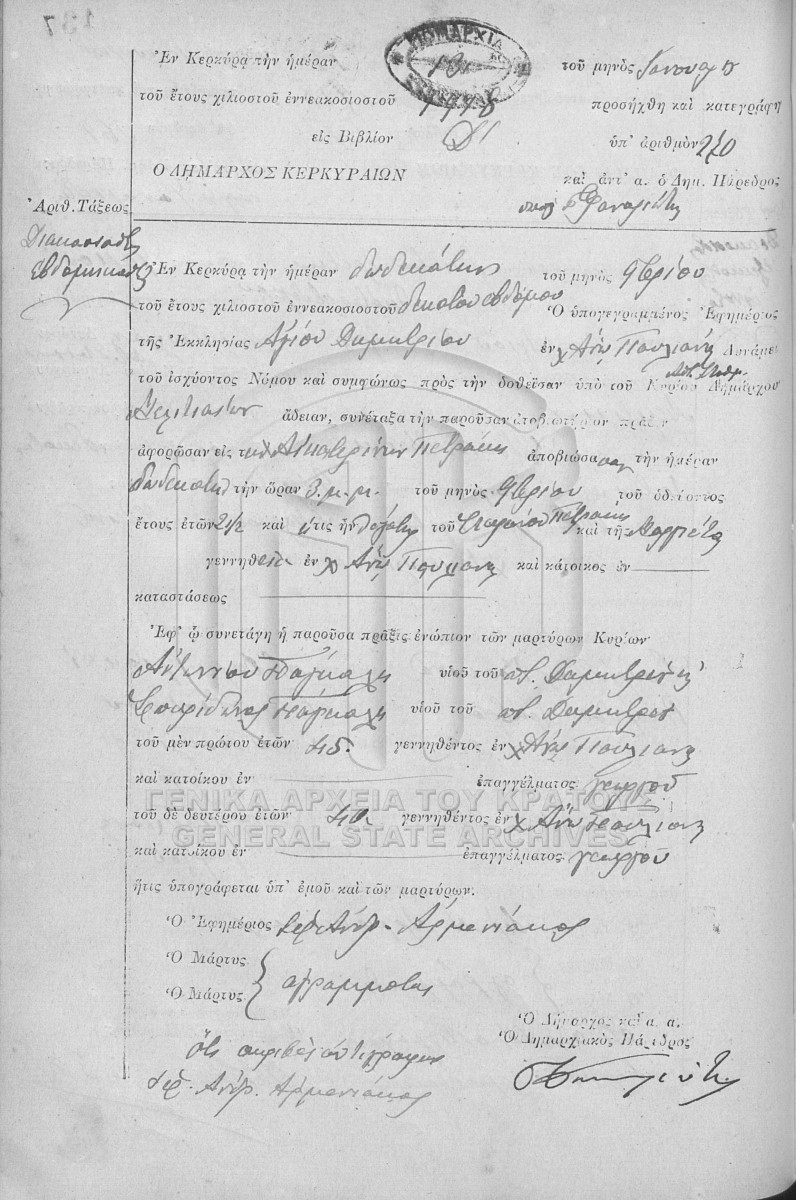 137
Ἐν Κερκύρᾳ τὴν ἡμέραν 18 τοῦ μηνὸς Ἰανουαρίου
τοῦ ἔτους χιλιοστοῦ ἐννεακοσιοστοῦ 1918 προσήχθη καὶ κατεγράφη
εἰς Βιβλίον ΔΙ ὑπ' ἀριθμὸν 270
Ο ΔΗΜΑΡΧΟΣ ΚΕΡΚΥΡΑΙΩΝ
καὶ ἀντ' α. ὁ Δημ. Πάρεδρος
Ἀριθ. Τάξεως
Διακοσιοστὴ
Ἑβδομηκοστὴ
Ἐν Κερκύρᾳ τὴν ἡμέραν δωδεκάτην τοῦ μηνὸς 9βρίου
τοῦ ἔτους χιλιοστοῦ ἐννεακοσιοστοῦ δεκάτου ἑβδόμου Ὁ ὑπογεγραμμένος Ἐφημέριος
τῆς Ἐκκλησίας Ἁγίου Δημητρίου ἐν χ Ἄνω Παυλιάνα Δυνάμει
τοῦ ἰσχύοντος Νόμου καὶ συμφώνως πρὸς τὴν δοθεῖσαν ὑπὸ τοῦ Κυρίου Δημάρχου
Μελιτιαίων ἄδειαν, συνέταξα τὴν παροῦσαν ἀποβιωτήριον πρᾶξιν
ἀφορῶσαν εἰς τὴν Αἰκατερίνην Πετράκη ἀποβιώσασαν τὴν ἡμέραν
δωδεκάτην τὴν ὥραν 3 μ.μ. τοῦ μηνὸς 9βρίου τοῦ ὁδεύοντος
ἔτους ἐτῶν 2 1/2 καὶ ἥτις ἦν θυγάτηρ τοῦ Πετράκη καὶ τῆς Μαριέτα
γεννηθεῖσα ἐν χ Ἄνω Παυλιάνα καὶ κάτοικος ἐν
καταστάσεως
Ἐφ' ᾧ συνετάγη ἡ παροῦσα πρᾶξις ἐνώπιον τῶν μαρτύρων Κυρίων
Ἀντωνίου Πάγκαλη υἱοῦ τοῦ ποτ. Δημητρίου
Σπυρίδωνος Πάγκαλη υἱοῦ τοῦ ποτ. Δημητρίου
τοῦ μὲν πρώτου ἐτῶν 45 γεννηθέντος ἐν χ Ἄνω Παυλιάνα
καὶ κατοίκου ἐν ἐπαγγέλματος γεωργοῦ
ΓΕΝΙΚΑ ΑΡΧΕΙΑ ΤΟΥ ΚΡΑΤΟΥΣ
τοῦ δὲ δευτέρου ἐτῶν 40 γεννηθέντος ἐν χ Ἄνω Παυλιάνα
GENERAL STATE ARCHIVES
καὶ κατοίκου ἐν ἐπαγγέλματος γεωργοῦ
ἥτις ὑπογράφεται ὑπ' ἐμοῦ καὶ τῶν μαρτύρων.
Ὁ Ἐφημέριος ἱερ. Ἀνδρ. Ἀρμενιάκος
Ὁ Μάρτυς
Ὁ Μάρτυς ἀγράμματοι
Ὁ Δήμαρχος καὶ α. α.
Ὁ Δημαρχιακὸς Πάρεδρος
Ὅτι ἀκριβὲς ἀντίγραφον
ἱερ. Ἀνδρ. Ἀρμενιάκος